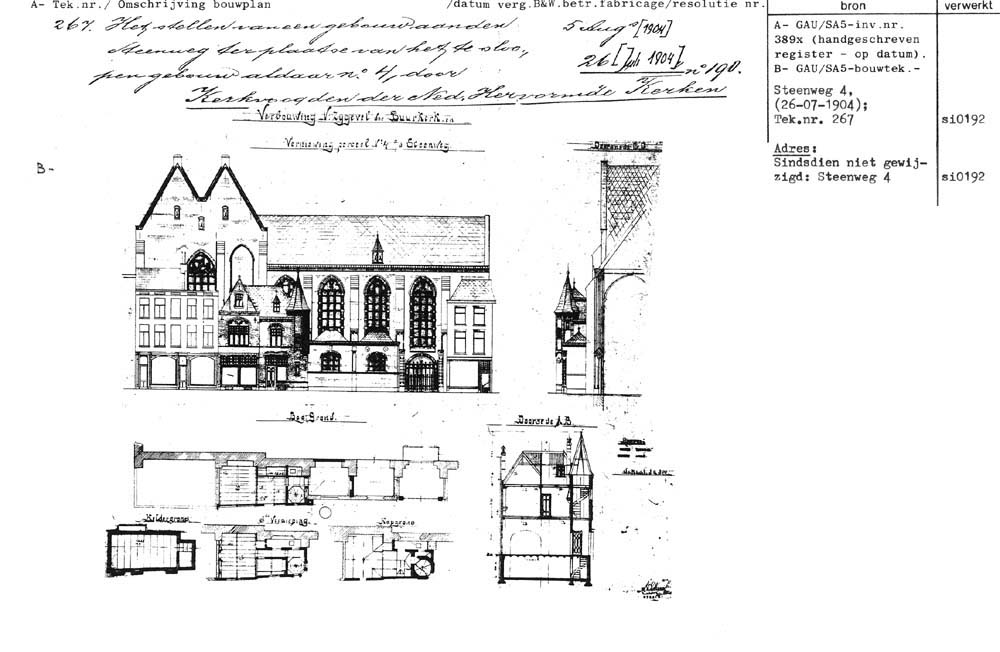 A- Tek.nr./ Omschrijving bouwplan /datum verg.B&W.betr.fabricage/resolutie nr. bron verwerkt
267. Het stellen van een gebouw aan den 5 Aug. [1904]
Steenweg ter plaatse van het te sloo- 26 [Juli 1904] no 190.
pen gebouw aldaar no. 4, door
Kerkvoogden der Ned. Hervormde Kerken
A- GAU/SA5-inv.nr.
389x (handgeschreven
register - op datum).
B- GAU/SA5-bouwtek.-
Steenweg 4,
(26-07-1904);
Tek.nr. 267 si0192
Adres:
Sindsdien niet gewij-
zigd: Steenweg 4 si0192
B-
Verbouwing V. Zggevel der Buurkerk en
Vernieuwing perceel No 4 a/d Steenweg.
Doorsnede C.D.
Beg: Grond.
Doorsnede A.B.
Keldergrond
1e Verdieping
Kapgrond